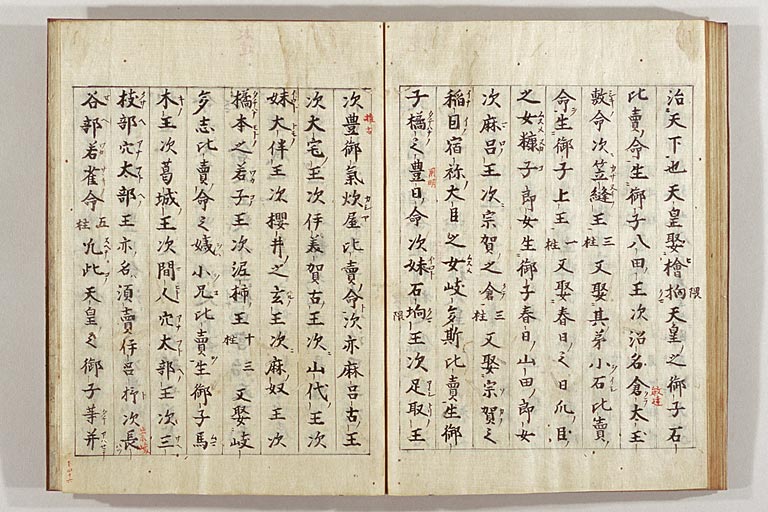 治天下也天皇娶檜坰天皇之御子石
比賣命生御子八田王次沼名倉太玉
敷命次笠縫王三柱又娶其弟小石比賣
命生御子上王一柱又娶春日之日爪臣
之女糠子郎女生御子春日山田郎女
次麻呂王次宗賀之倉王三柱又娶宗賀之
稲目宿祢大臣之女岐多斯比賣生御
子橘之豊日命次妹石坰王次足取王
次豊御氣炊屋比賣命次亦麻呂古王
次大宅王次伊美賀古王次山代王次
妹大伴王次櫻井之玄王次麻奴王次
橘本之若子王次泥杼王十三柱又娶岐
多志比賣命之姨小兄比賣生御子馬
木王次葛城王次間人穴太部王次三
枝部穴太部王亦名須賣伊呂杼次長
谷部若雀命五柱凡此天皇之御子等并